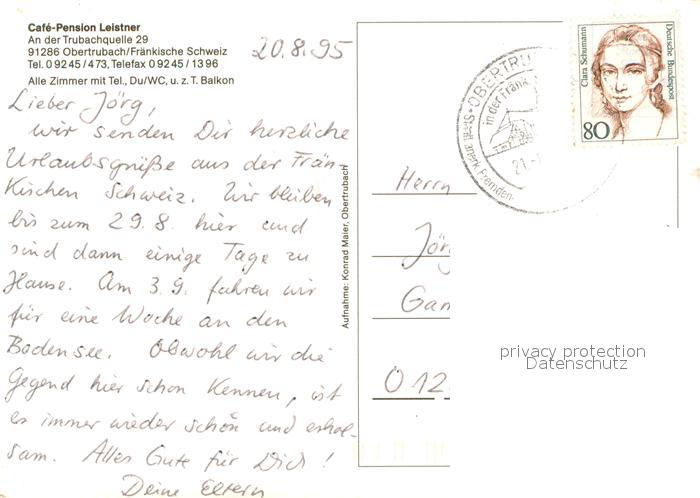 Café-Pension Leistner
An der Trubachquelle 29
91286 Obertrubach/Fränkische Schweiz
Tel. 0 92 45 / 473, Telefax 0 92 45 / 13 96
Alle Zimmer mit Tel., Du/WC, u. z. T. Balkon
20.8.95
Lieber Jörg,
wir senden Dir herzliche
Urlaubsgrüße aus der Frän-
kischen Schweiz. Wir bleiben
bis zum 29.8. hier und
sind dann einige Tage zu
Hause. Am 3.9. fahren wir
für eine Woche an den
Bodensee. Obwohl wir die
Gegend hier schon kennen, ist
es immer wieder schön und erhol-
sam. Alles Gute für Dich!
Deine Eltern
Aufnahme: Konrad Maier, Obertrubach
OBERTRU
in der Fränk.
Staatl. anerk. Fremden-
21.
Clara Schumann
Deutsche Bundespost
80
Herrn
Jörg
Gan
0 12
privacy protection
Datenschutz